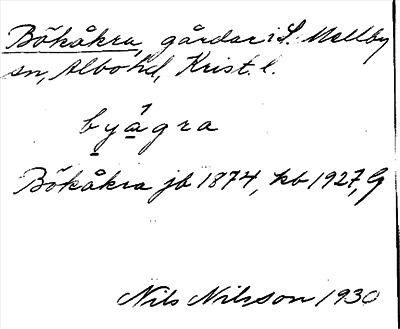 Bökåkra, gårdar i S. Mellby
sn, Albo hd, Krist. l.
byágra
Bökåkra jb 1874, kb 1927, G
Nils Nilsson 1930